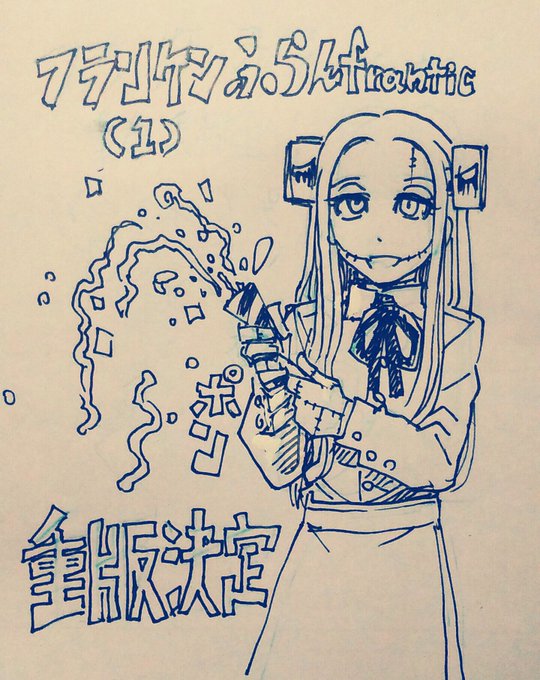 フランケンふらんfrantic
(1)
ポン
重版決定